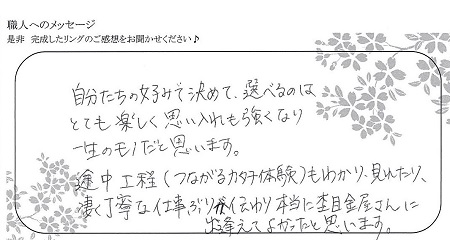 職人へのメッセージ
是非 完成したリングのご感想をお聞かせください♪
自分たちの好みで決めて、選べるのは
とても楽しく思い入れも強くなり
一生のモノだと思います。
途中工程(つながるカタチ体験)もわかり、見れたり、
凄く丁寧な仕事ぶりが伝わり本当に杢目金屋さんに
出逢えてよかったと思います。